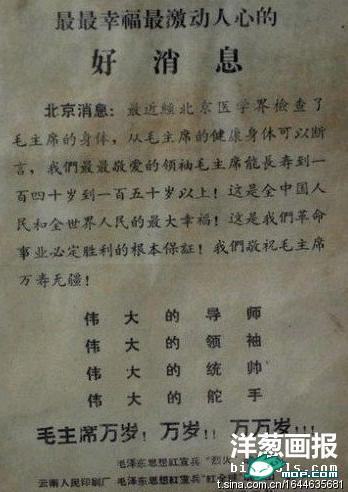 最最幸福最激动人心的
好消息
北京消息：最近經北京医学界檢查了
毛主席的身体，从毛主席的健康身体可以断
言，我們最最敬爱的领袖毛主席能長寿到一
百四十岁到一百五十岁以上！这是全中国人
民和全世界人民的最大幸福！这是我們革命
事业必定胜利的根本保証！我們敬祝毛主席
万寿无疆！
伟大的导师
伟大的领袖
伟大的统帅
伟大的舵手
毛主席万岁！万岁！！万万岁！！！
毛泽东思想紅宣兵“烈火
云南人民印刷厂 毛泽东思想紅宣兵“紅全球
洋葱画报
t.sina.com.cn/1644635681